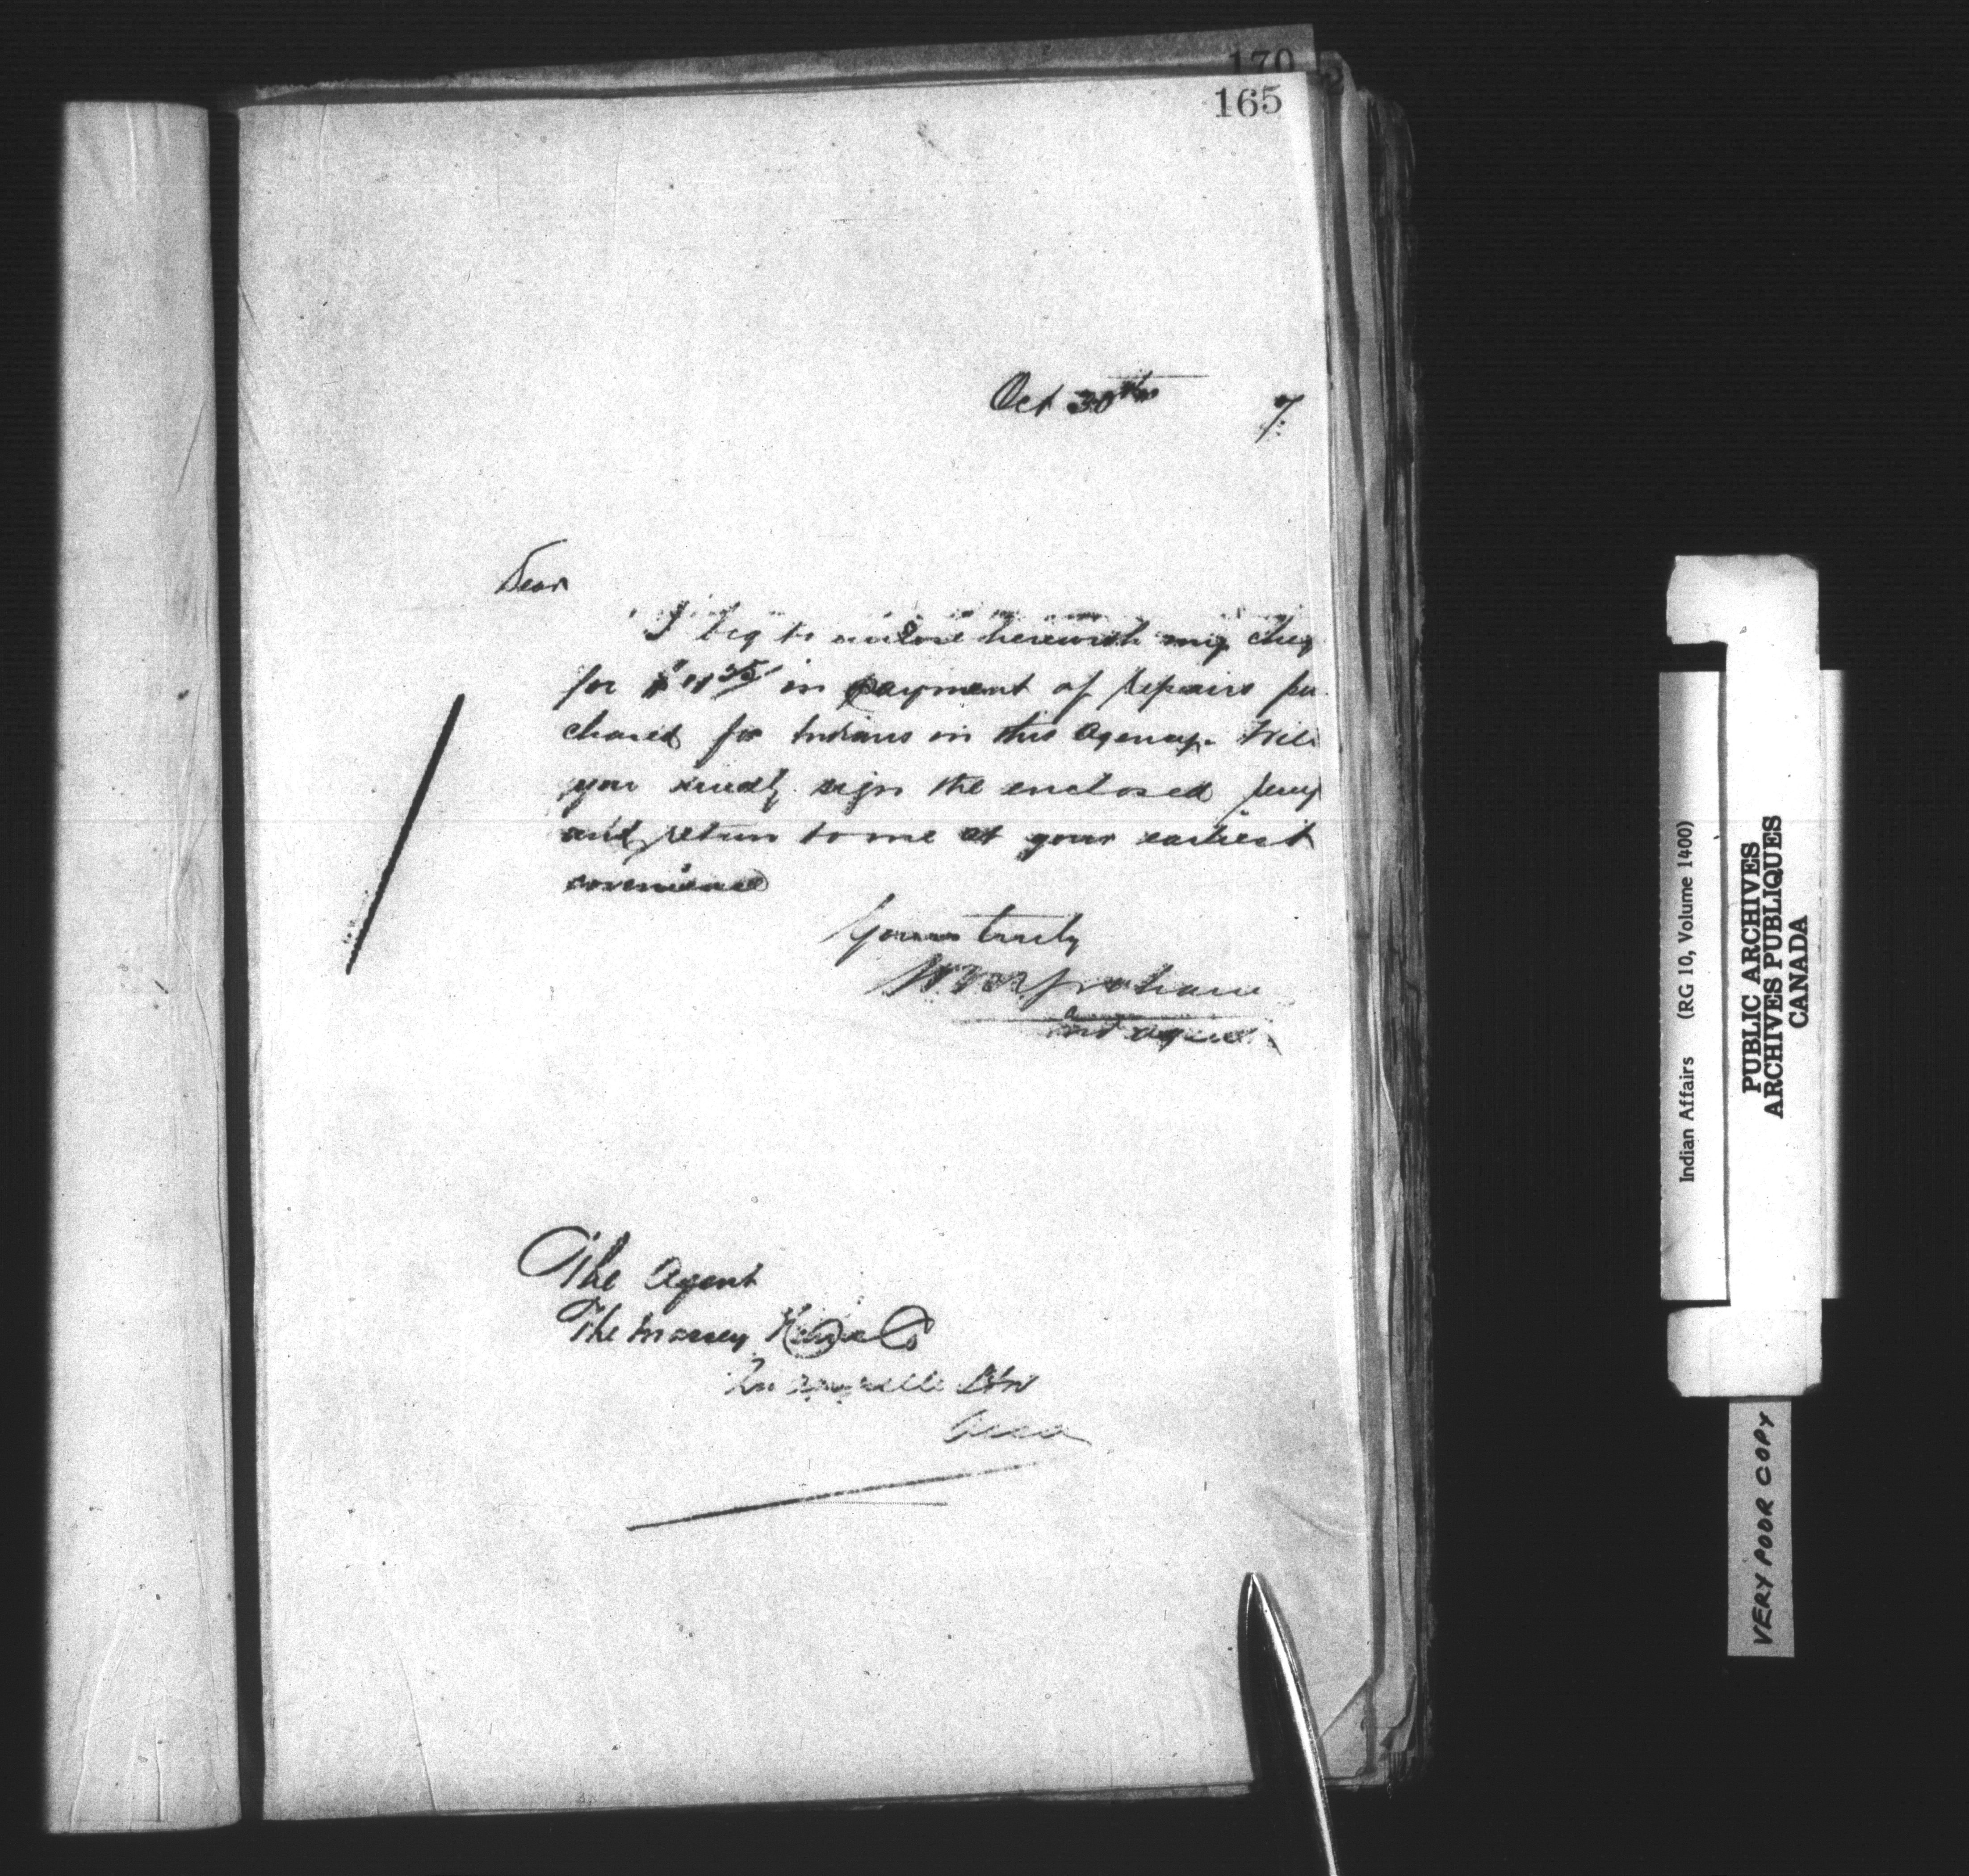 170
165
Oct 30th 7
Dear
I beg to enclose herewith my cheq
for $11 25/ in payment of repairs pu
chased for Indians in this Agency. Will
you kindly sign the enclosed
and return to me at your earliest
convenience
Yours truly
W M Graham
Ind Agent
The Agent
The Massey Harris Co
Qu'Appelle Stn
Assa
Indian Affairs (RG 10, Volume 1400)
PUBLIC ARCHIVES
ARCHIVES PUBLIQUES
CANADA
VERY POOR COPY